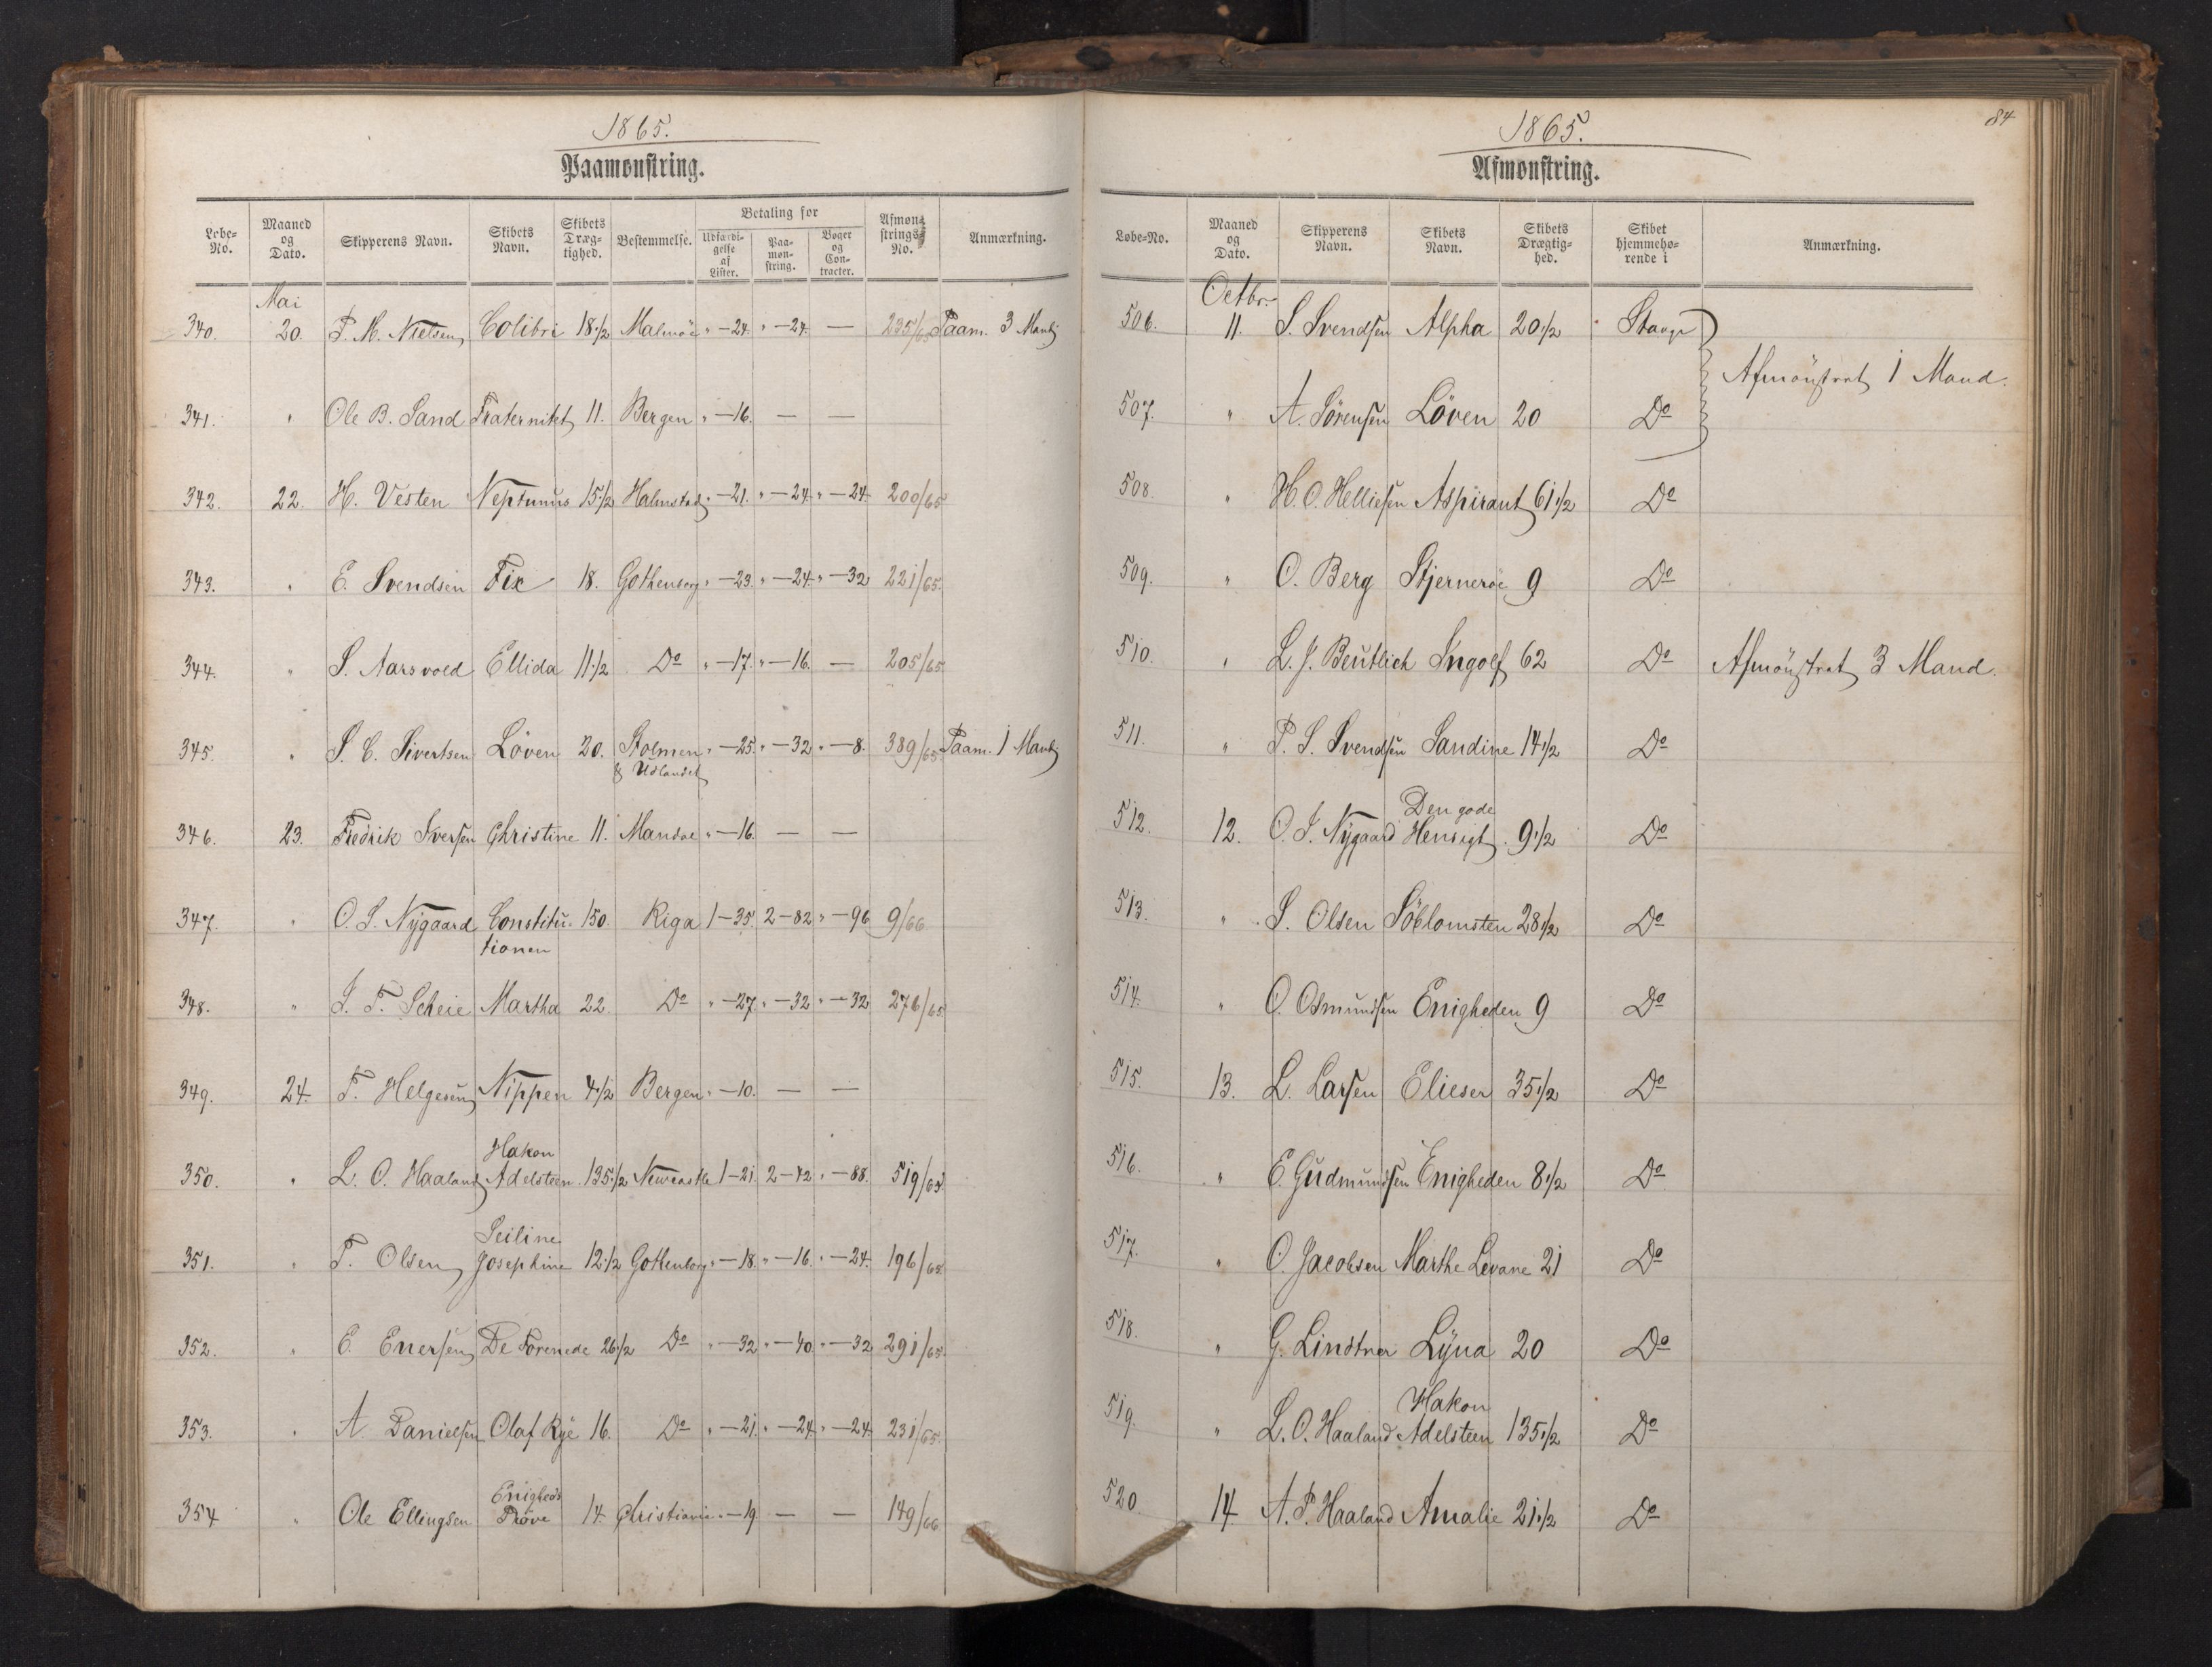 1865.
Paamønstring.
Løbe-No. Maaned og Dato. Skipperens Navn. Skibets Navn. Skibets Dræg-tighed. Bestemmelse. Betaling for Udfærdi-gelse af Lister. Paa-møn-string. Bøger og Con-tracter. Afmøn-strings No. Anmærkning.
Mai
340. 20. P. M. Nielsen Colibri 18 1/2 Malmöe " - 24. " - 24. — 235/65 Paam. 3 Mand
341. " Ole B. Sand Fraternitet 11. Bergen " - 16. — —
342. 22. H. Vesten Neptunus 15 1/2 Halmstad " - 21. " - 24. " - 24. 200/65
343. " E. Svendsen Fix 18. Gothenborg " - 23. " - 24. " - 32 221/65.
344. " S. Aarsvold Ellida 11 1/2 Do " - 17. " - 16. — 205/65
345. " S. C. Sivertsen Löven 20. Holmen " - 25. " - 32. " - 8. 389/65 Paam. 1 Mand
& Udlandet
346. 23. Fredrik Iversen Christine 11. Mandal " - 16. — —
347. " O. S. Nygaard Constitu- 150. Riga 1 - 35. 2 - 82 " - 96 9/66
tionen
348. " I. T. Scheie Martha 22. Do " - 27. " - 32 " - 32 276/65
349. 24. T. Helgesen Nippen 4 1/2 Bergen " - 10. — —
Hakon
350. " L. O. Haaland Adelsteen 135 1/2 Newcastle 1 - 21. 2 - 72 " - 88. 519/65.
Seiline
351. " T. Olsen Josephine 12 1/2 Gothenborg " - 18. " - 16. " - 24. 196/65.
352. " E. Enersen De Forenede 26 1/2 Do " - 32 " - 40. " - 32 291/65.
353. " A. Danielsen Olaf Rye 16. Do " - 21. " - 24. " - 24. 231/65.
Enigheds
354 " Ole Ellingsen Pröve 14. Christiania " - 19 — — 149/66
84
1865.
Afmønstring.
Løbe-No. Maaned og Dato. Skipperens Navn. Skibets Navn. Skibets Drægtig-hed. Skibet hjemmehø-rende i Anmærkning.
Octbr.
506. 11. S. Svendsen Alpha 20 1/2 Stavgr
Afmönstret 1 Mand.
507. " A. Sörensen Löven 20 Do
508. " H. O. Helliesen Aspirant 61 1/2 Do
509. " O. Berg Stjerneröe 9 Do
510. " L. J. Beutlich Ingolf 62 Do Afmönstret 3 Mand.
511. " P. S. Svendsen Sandine 14 1/2 Do
Den gode
512. 12. O. I. Nygaard Hensigt. 9 1/2 Do
513. " S. Olsen Söblomsten 28 1/2 Do
514. " O. Osmundsen Enigheden 9 Do
515. 13. L. Larsen Elieser 35 1/2 Do
516. " E. Gudmundsen Enigheden 8 1/2 Do
517. " O. Jacobsen Marthe Levane 21 Do
518. " G. Lindtner Lyna 20 Do
Hakon
519. " L. O. Haaland Adelsteen 135 1/2 Do
520 14. A. P. Haaland Amalie 21 1/2 Do